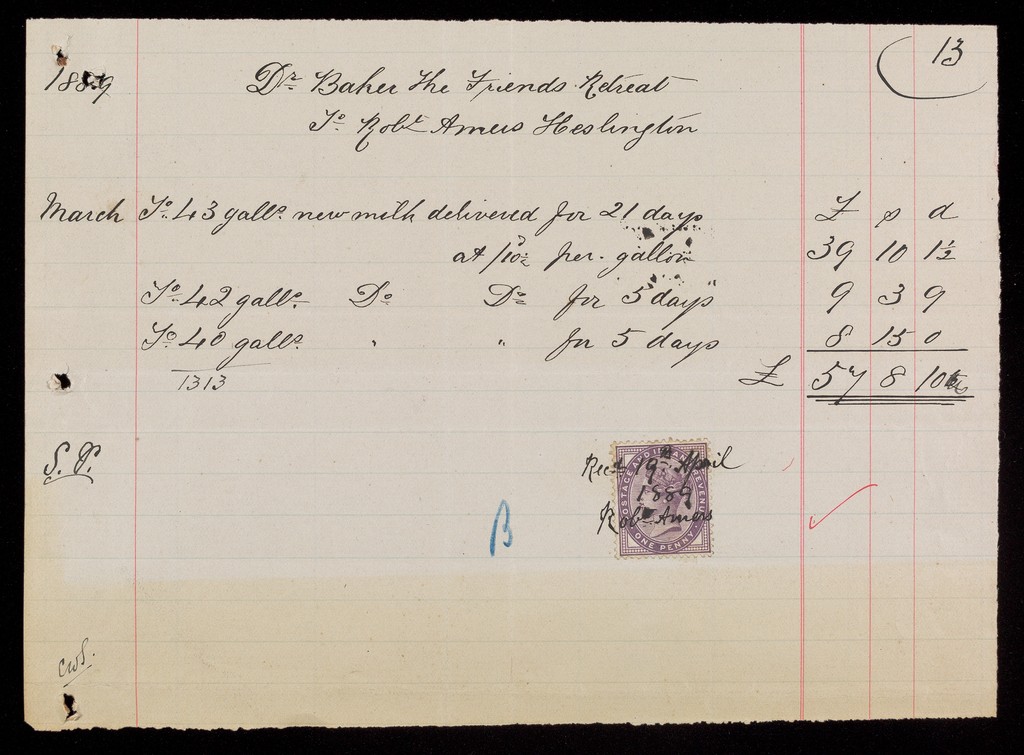 13
1889 Dr. Baker The Friends Retreat
To. Robt. Amers Heslington
March To. 43 galls. new milk delivered for 21 days £ s d
at /10½ per. gallon 39 10 1½
To. 42 galls. Do Do for 5 days 9 3 9
To 40 galls. " " for 5 days 8 15 0
1313 £ 57 8 10
S. P.
POSTAGE AND INLAND REVENUE
ONE PENNY
Recd. 19th April
1889
Robt Amers
B
cws.